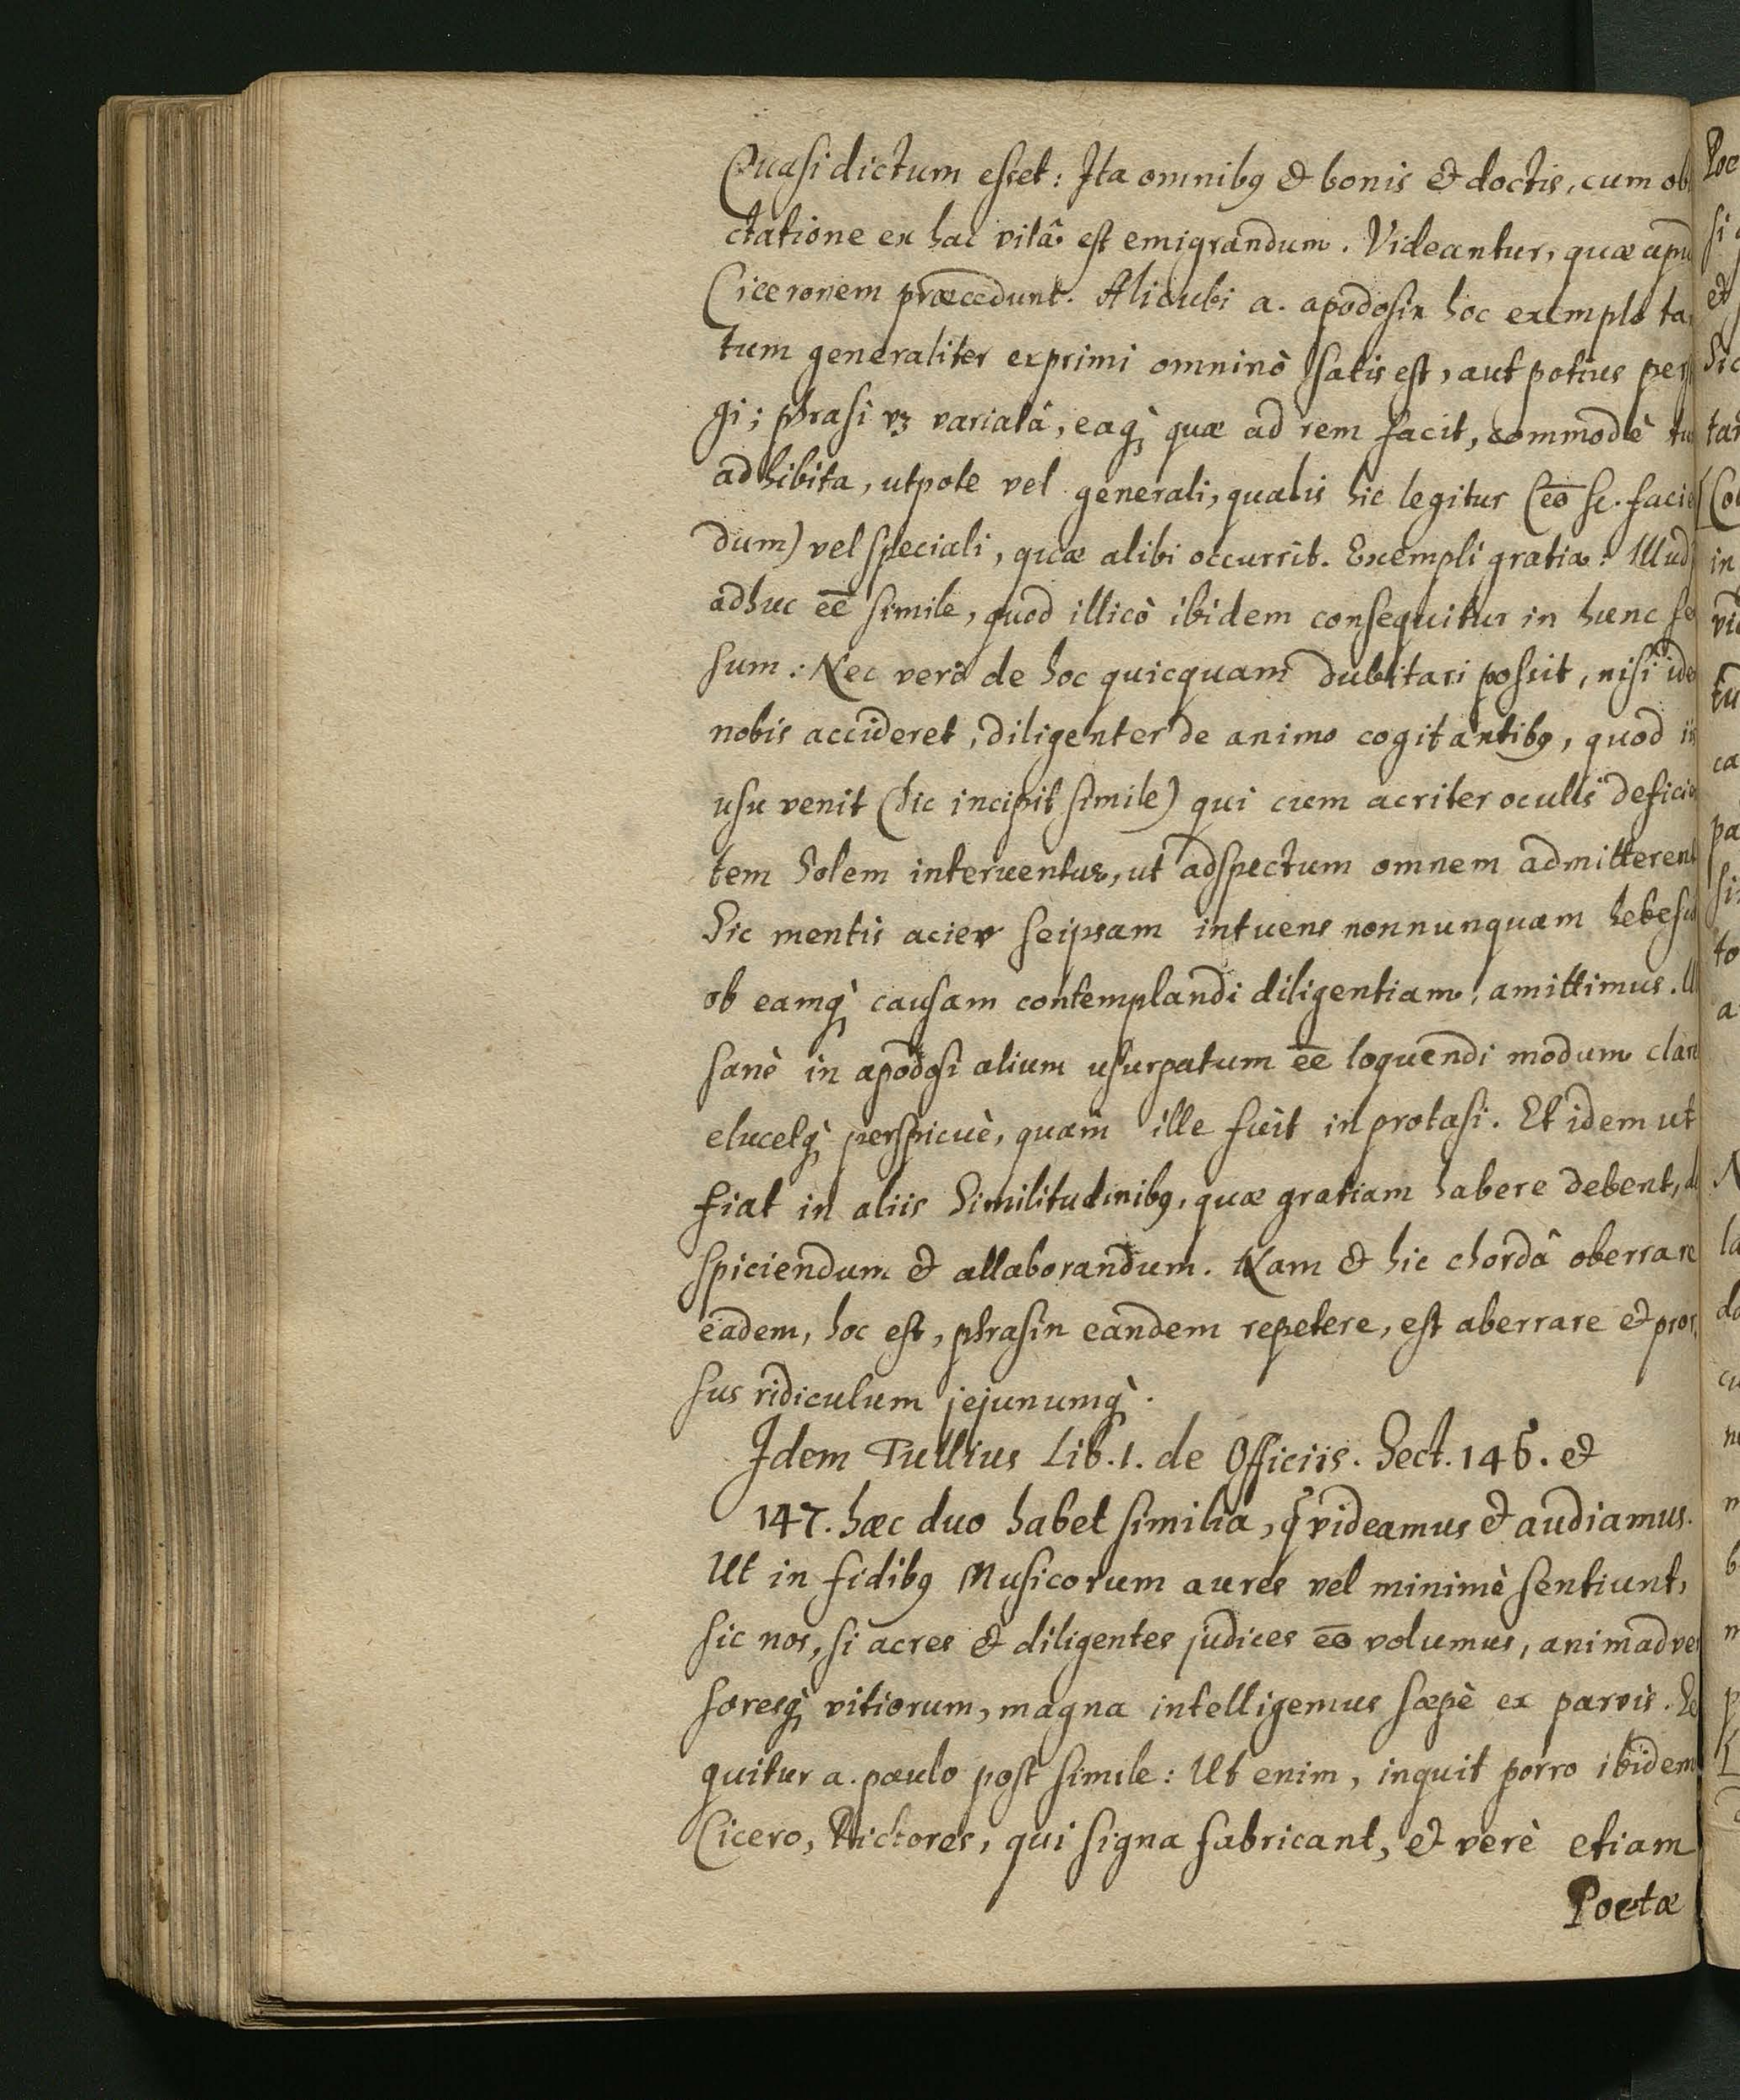 Quasi dictum esset: Ita omnibꝰ & bonis & doctis, cum ob
ctatione ex hac vitâ est emigrandum. Videantur, quæ apu
Ciceronem præcedunt. Alicubi a. apodosin hoc exemplo ta
tum generaliter exprimi omninò satis est, aut potius per
gi; phrasi vꝫ variatâ, eaqꝫ̀ quæ ad rem facit, commodè tu
adhibita, utpote vel generali, qualis hic legitur (eō sc. facie
dum) vel speciali, quæ alibi occurrit. Exempli gratia: Illud
adhuc eē simile, quod illicò ibidem consequitur in hunc se
sum: Nec verò de hoc quicquam dubitari possit, nisi ide
nobis accideret, diligenter de animo cogitantibꝰ, quod iis
usu venit (hic incipit simile) qui cum acriter oculis deficie
tem Solem intuentur, ut adspectum omnem admitterent
Sic mentis acies seipsam intuens nonnunquam hebesci
ob eamqꝫ̀ causam contemplandi diligentiam, amittimus. Ul
sanè in apodosi alium usurpatum eē loquendi modum clare
elucetqꝫ̀ perspicuè, quam ille fuit in protasi. Et idem ut
fiat in aliis Similitudinibꝰ, quæ gratiam habere debent, d
spiciendum & allaborandum. Nam & hic chordâ oberrare
eadem, hoc est, phrasin eandem repetere, est aberrare & pror
sus ridiculum jejunumqꝫ̀.
Idem Tullius Lib. 1. de Officiis. Sect. 145. &
147. hæc duo habet similia, q̃ videamus & audiamus.
Ut in fidibꝰ Musicorum aures vel minimè sentiunt,
sic nos, si acres & diligentes judices eō volumus, animadver
soresqꝫ̀ vitiorum, magna intelligemus sæpè ex parvis. Se
quitur a. paulo post simile: Ut enim, inquit porro ibidem
Cicero, Pictores, qui signa fabricant, & verè etiam
Poetæ